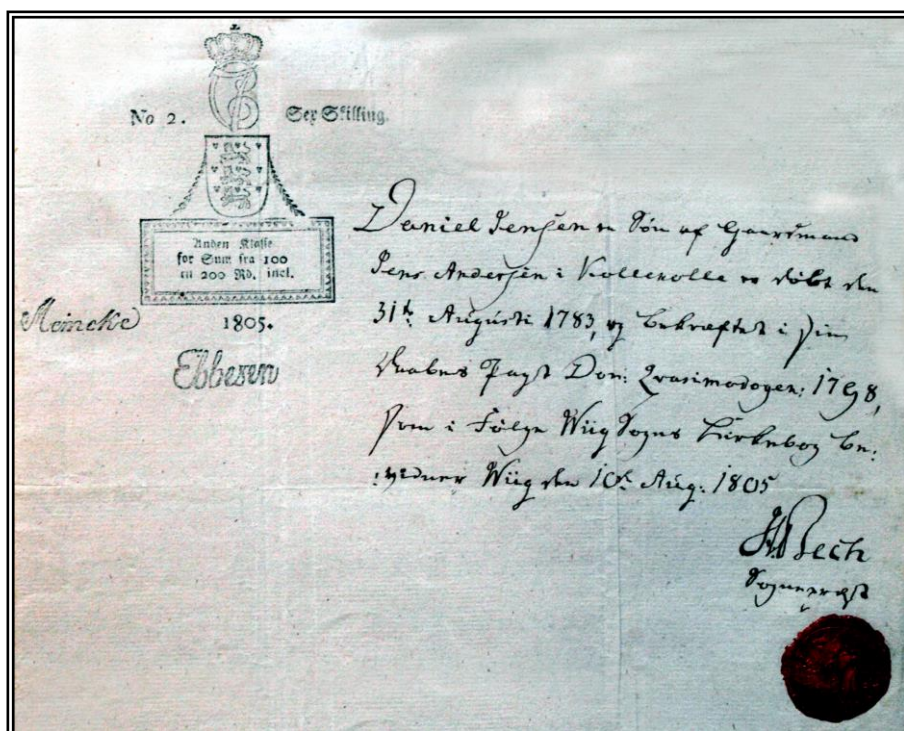 No 2. Sex Skilling.
Anden Klasse
for Sum fra 100
til 200 Rd. incl.
Meincke
1805.
Ebbesen
Daniel Jensen en Søn af Gaardmand
Jens Andersen i Kollekolle er døbt den
31te Augusti 1783, og bekræftet i sin
Daabes Pagt Dom: Qvasimodogen: 1798,
som i Følge Wiig Sogns Kirkebog be:
:vidner Wiig den 10de Aug: 1805
H Bech
Sognepræst